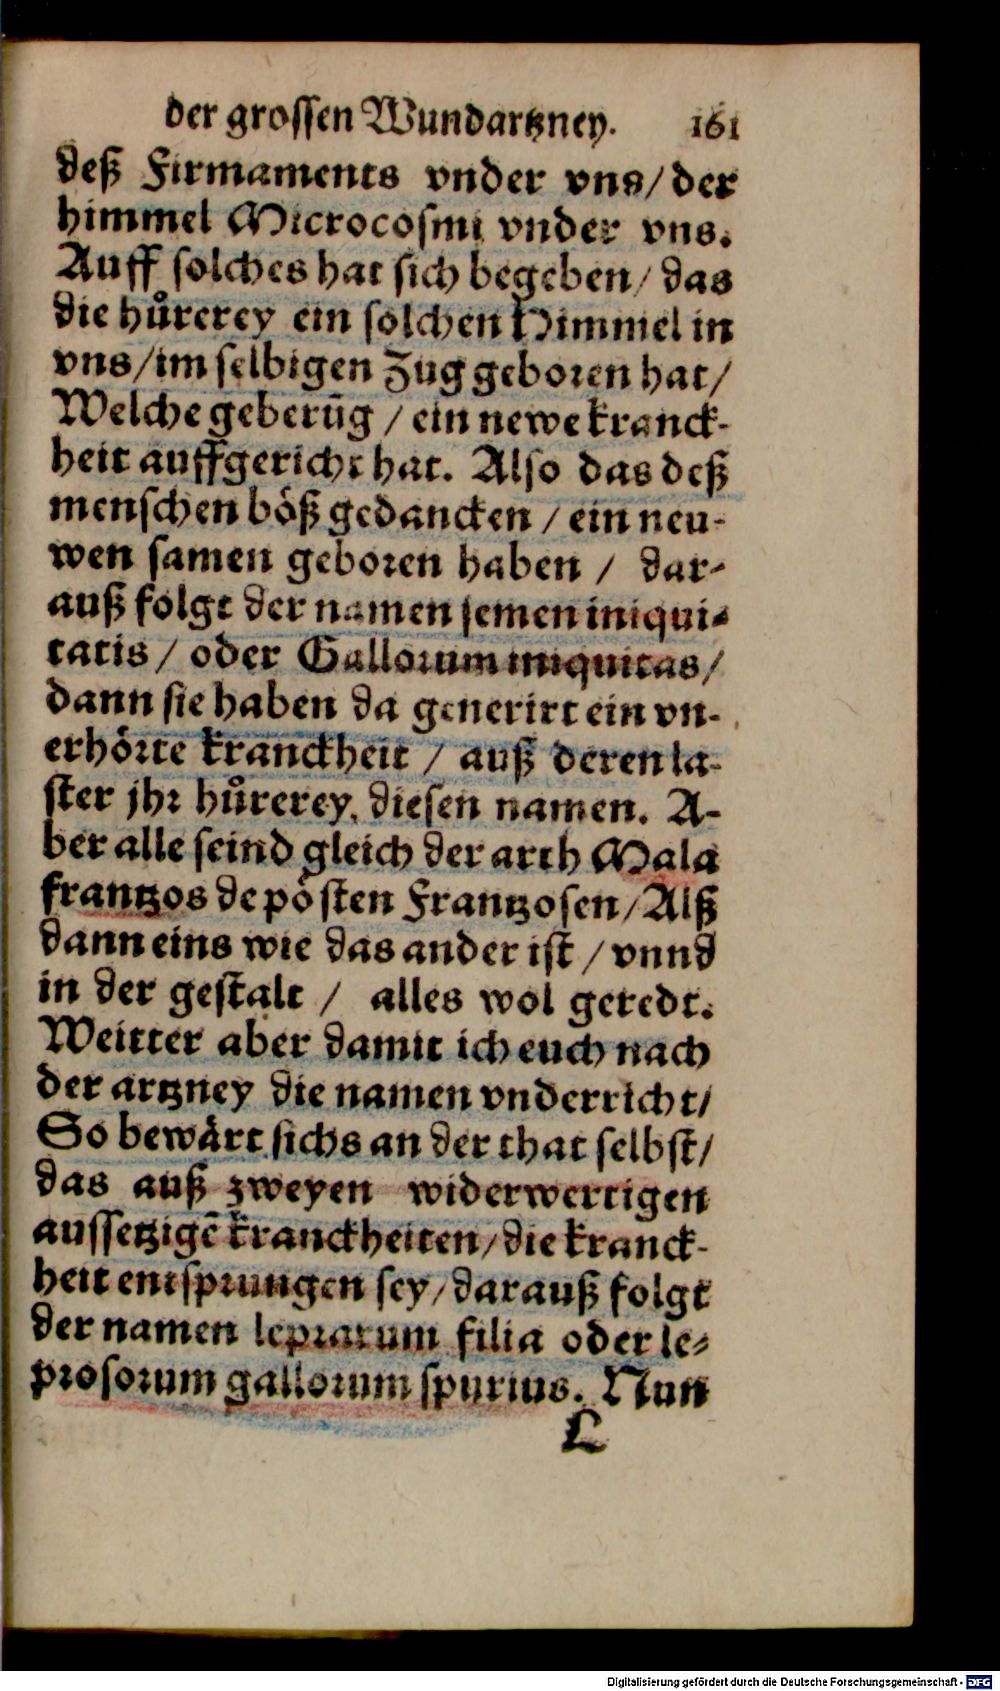 der grossen Wundartzney. 161
deß Firmaments vnder vns/ der
himmel Microcosmi vnder vns.
Auff solches hat sich begeben/ das
die hůrerey ein solchen Himmel in
vns/im selbigen Zug geboren hat/
Welche geberūg / ein newe kranck-
heit auffgericht hat. Also das deß
menschen böß gedancken / ein neu-
wen samen geboren haben / dar-
auß folgt der namen semen iniqui-
tatis / oder Gallorum iniquitas/
dann sie haben da generirt ein vn-
erhörte kranckheit / auß deren la-
ster jhr hůrerey, diesen namen. A-
ber alle seind gleich der arth Mala
frantzos de pösten Frantzosen/Alß
dann eins wie das ander ist / vnnd
in der gestalt / alles wol geredt.
Weitter aber damit ich euch nach
der artzney die namen vnderricht/
So bewärt sichs an der that selbst/
das auß zweyen widerwertigen
aussetzigē kranckheiten/die kranck-
heit entsprungen sey/darauß folgt
der namen leprarum filia oder le-
prosorum gallorum spurius. Nun
L
Digitalisierung gefördert durch die Deutsche Forschungsgemeinschaft - DFG